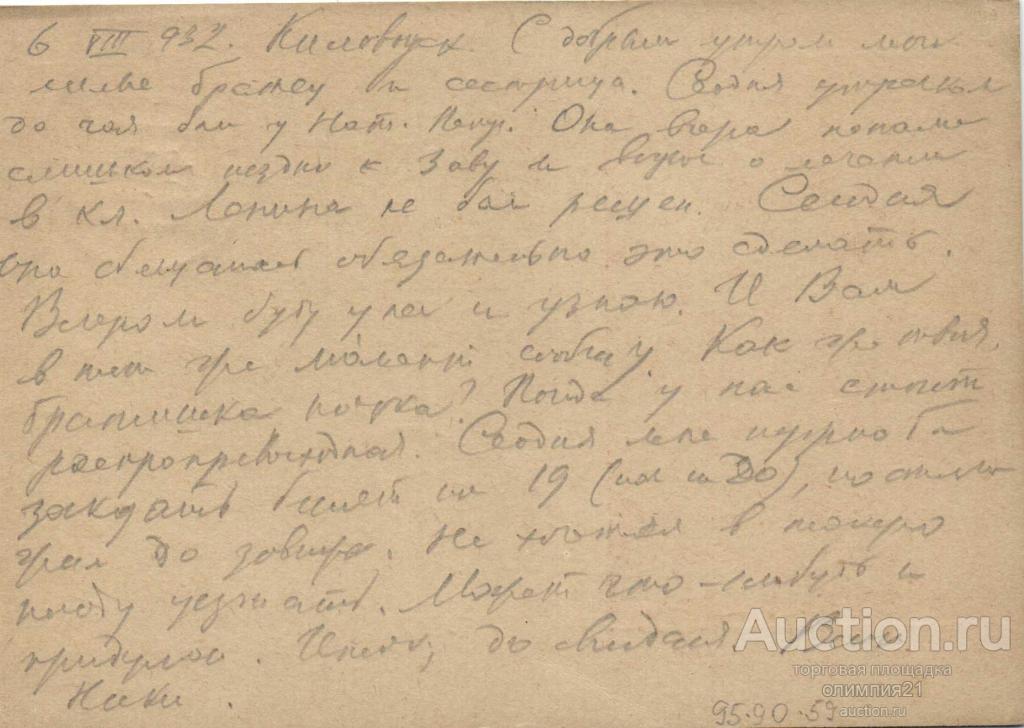 6 VIII 932. Кисловодск. С добрым утром мои
милые братец и сестрица. Сегодня утром
до чая был у Нат. Она вчера попала
слишком поздно к Заву и вопрос о лечении
в кл. Ленина не был решен. Сегодня
она обещала обязательно это сделать.
Вечером буду у нее и узнаю. И Вам
в тот же момент сообщу. Как же твоя,
братишка почка? Погода у нас стоит
распропревосходная. Сегодня мне нужно бы
заказать билет на 19 (), но отло
жил до завтра. Не хочется в такую
погоду уезжать. Может что-нибудь и
придумаю. Итак, до свидания Ваш
Ника.
95-90-59
Auction.ru
торговая площадка
олимпия21
auction.ru